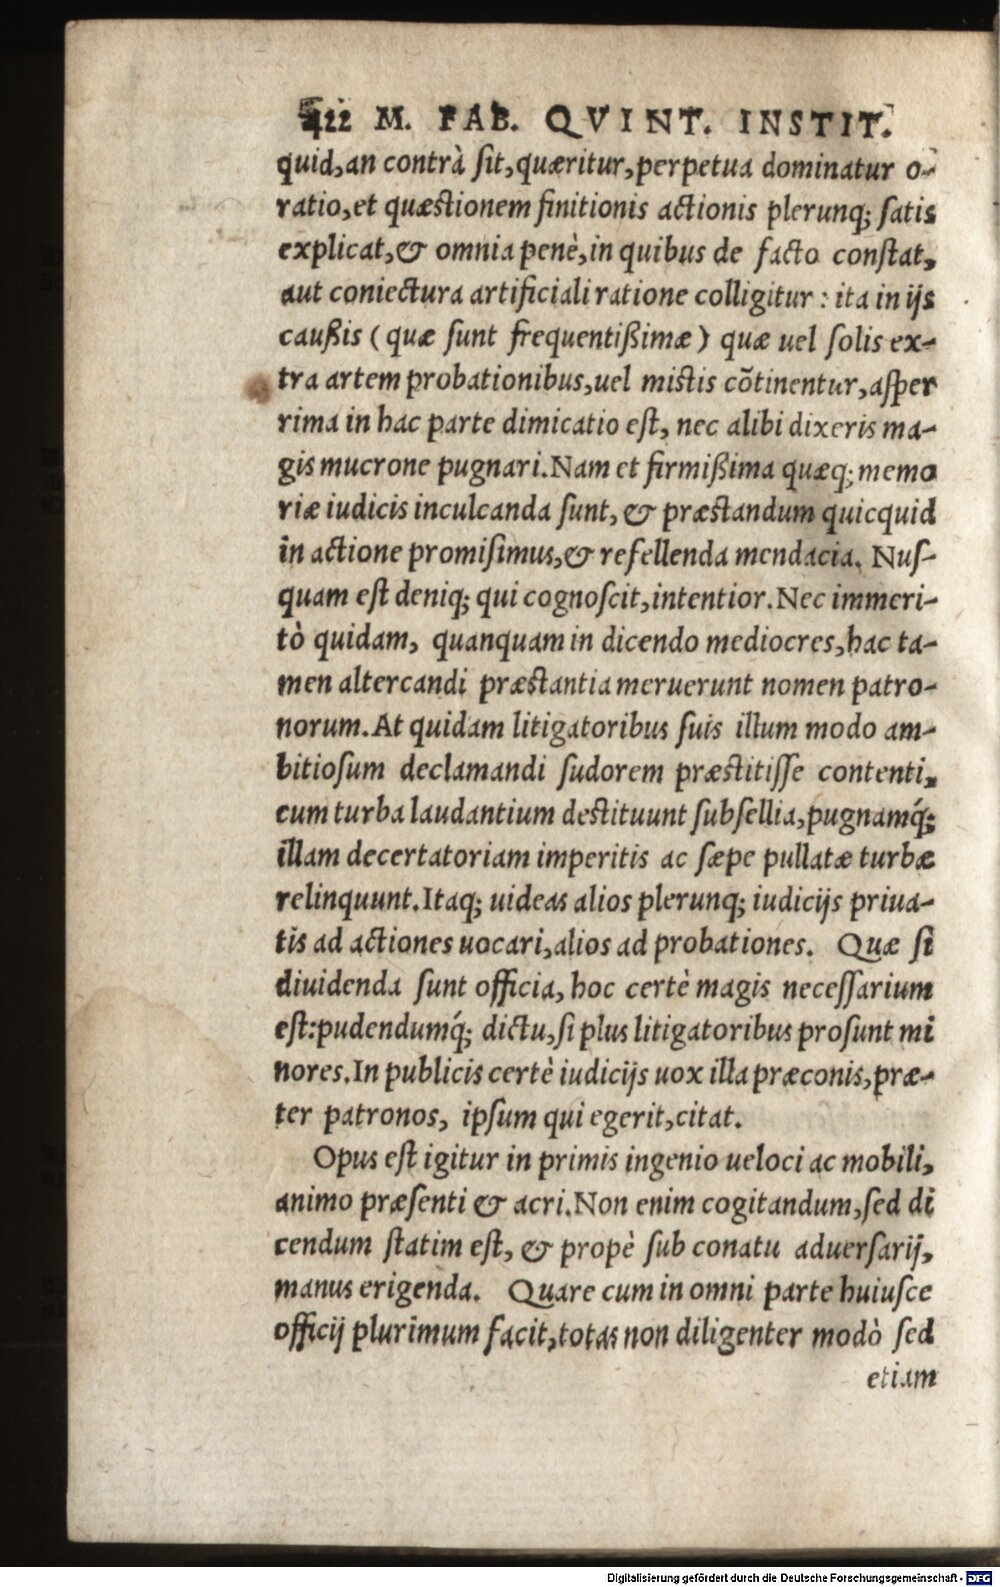 422 M. FAB. QVINT. INSTIT.
quid,an contrà ſit,quæritur,perpetua dominatur o-
ratio,et quæſtionem finitionis actionis plerunq; ſatis
explicat,& omnia penè,in quibus de facto conſtat,
aut coniectura artificiali ratione colligitur : ita in ijs
caußis (quæ ſunt frequentißimæ) quæ uel ſolis ex-
tra artem probationibus,uel miſtis cõtinentur,aſper
rima in hac parte dimicatio eſt, nec alibi dixeris ma-
gis mucrone pugnari.Nam et firmißima quæq; memo
riæ iudicis inculcanda ſunt, & præſtandum quicquid
in actione promiſimus,& refellenda mendacia. Nuſ-
quam eſt deniq; qui cognoſcit,intentior.Nec immeri-
tò quidam, quanquam in dicendo mediocres,hac ta-
men altercandi præſtantia meruerunt nomen patro-
norum.At quidam litigatoribus ſuis illum modo am-
bitioſum declamandi ſudorem præſtitiſſe contenti,
cum turba laudantium deſtituunt ſubſellia,pugnamq́;
illam decertatoriam imperitis ac ſæpe pullatæ turbæ
relinquunt.Itaq; uideas alios plerunq; iudicijs priua-
tis ad actiones uocari,alios ad probationes. Quæ ſi
diuidenda ſunt officia, hoc certè magis neceſſarium
eſt:pudendumq́; dictu,ſi plus litigatoribus proſunt mi
nores.In publicis certè iudicijs uox illa præconis,præ-
ter patronos, ipſum qui egerit,citat.
Opus eſt igitur in primis ingenio ueloci ac mobili,
animo præſenti & acri.Non enim cogitandum,ſed di
cendum ſtatim eſt, & propè ſub conatu aduerſarij,
manus erigenda. Quare cum in omni parte huiuſce
officij plurimum facit,totas non diligenter modò ſed
etiam
Digitalisierung gefördert durch die Deutsche Forschungsgemeinschaft - DFG